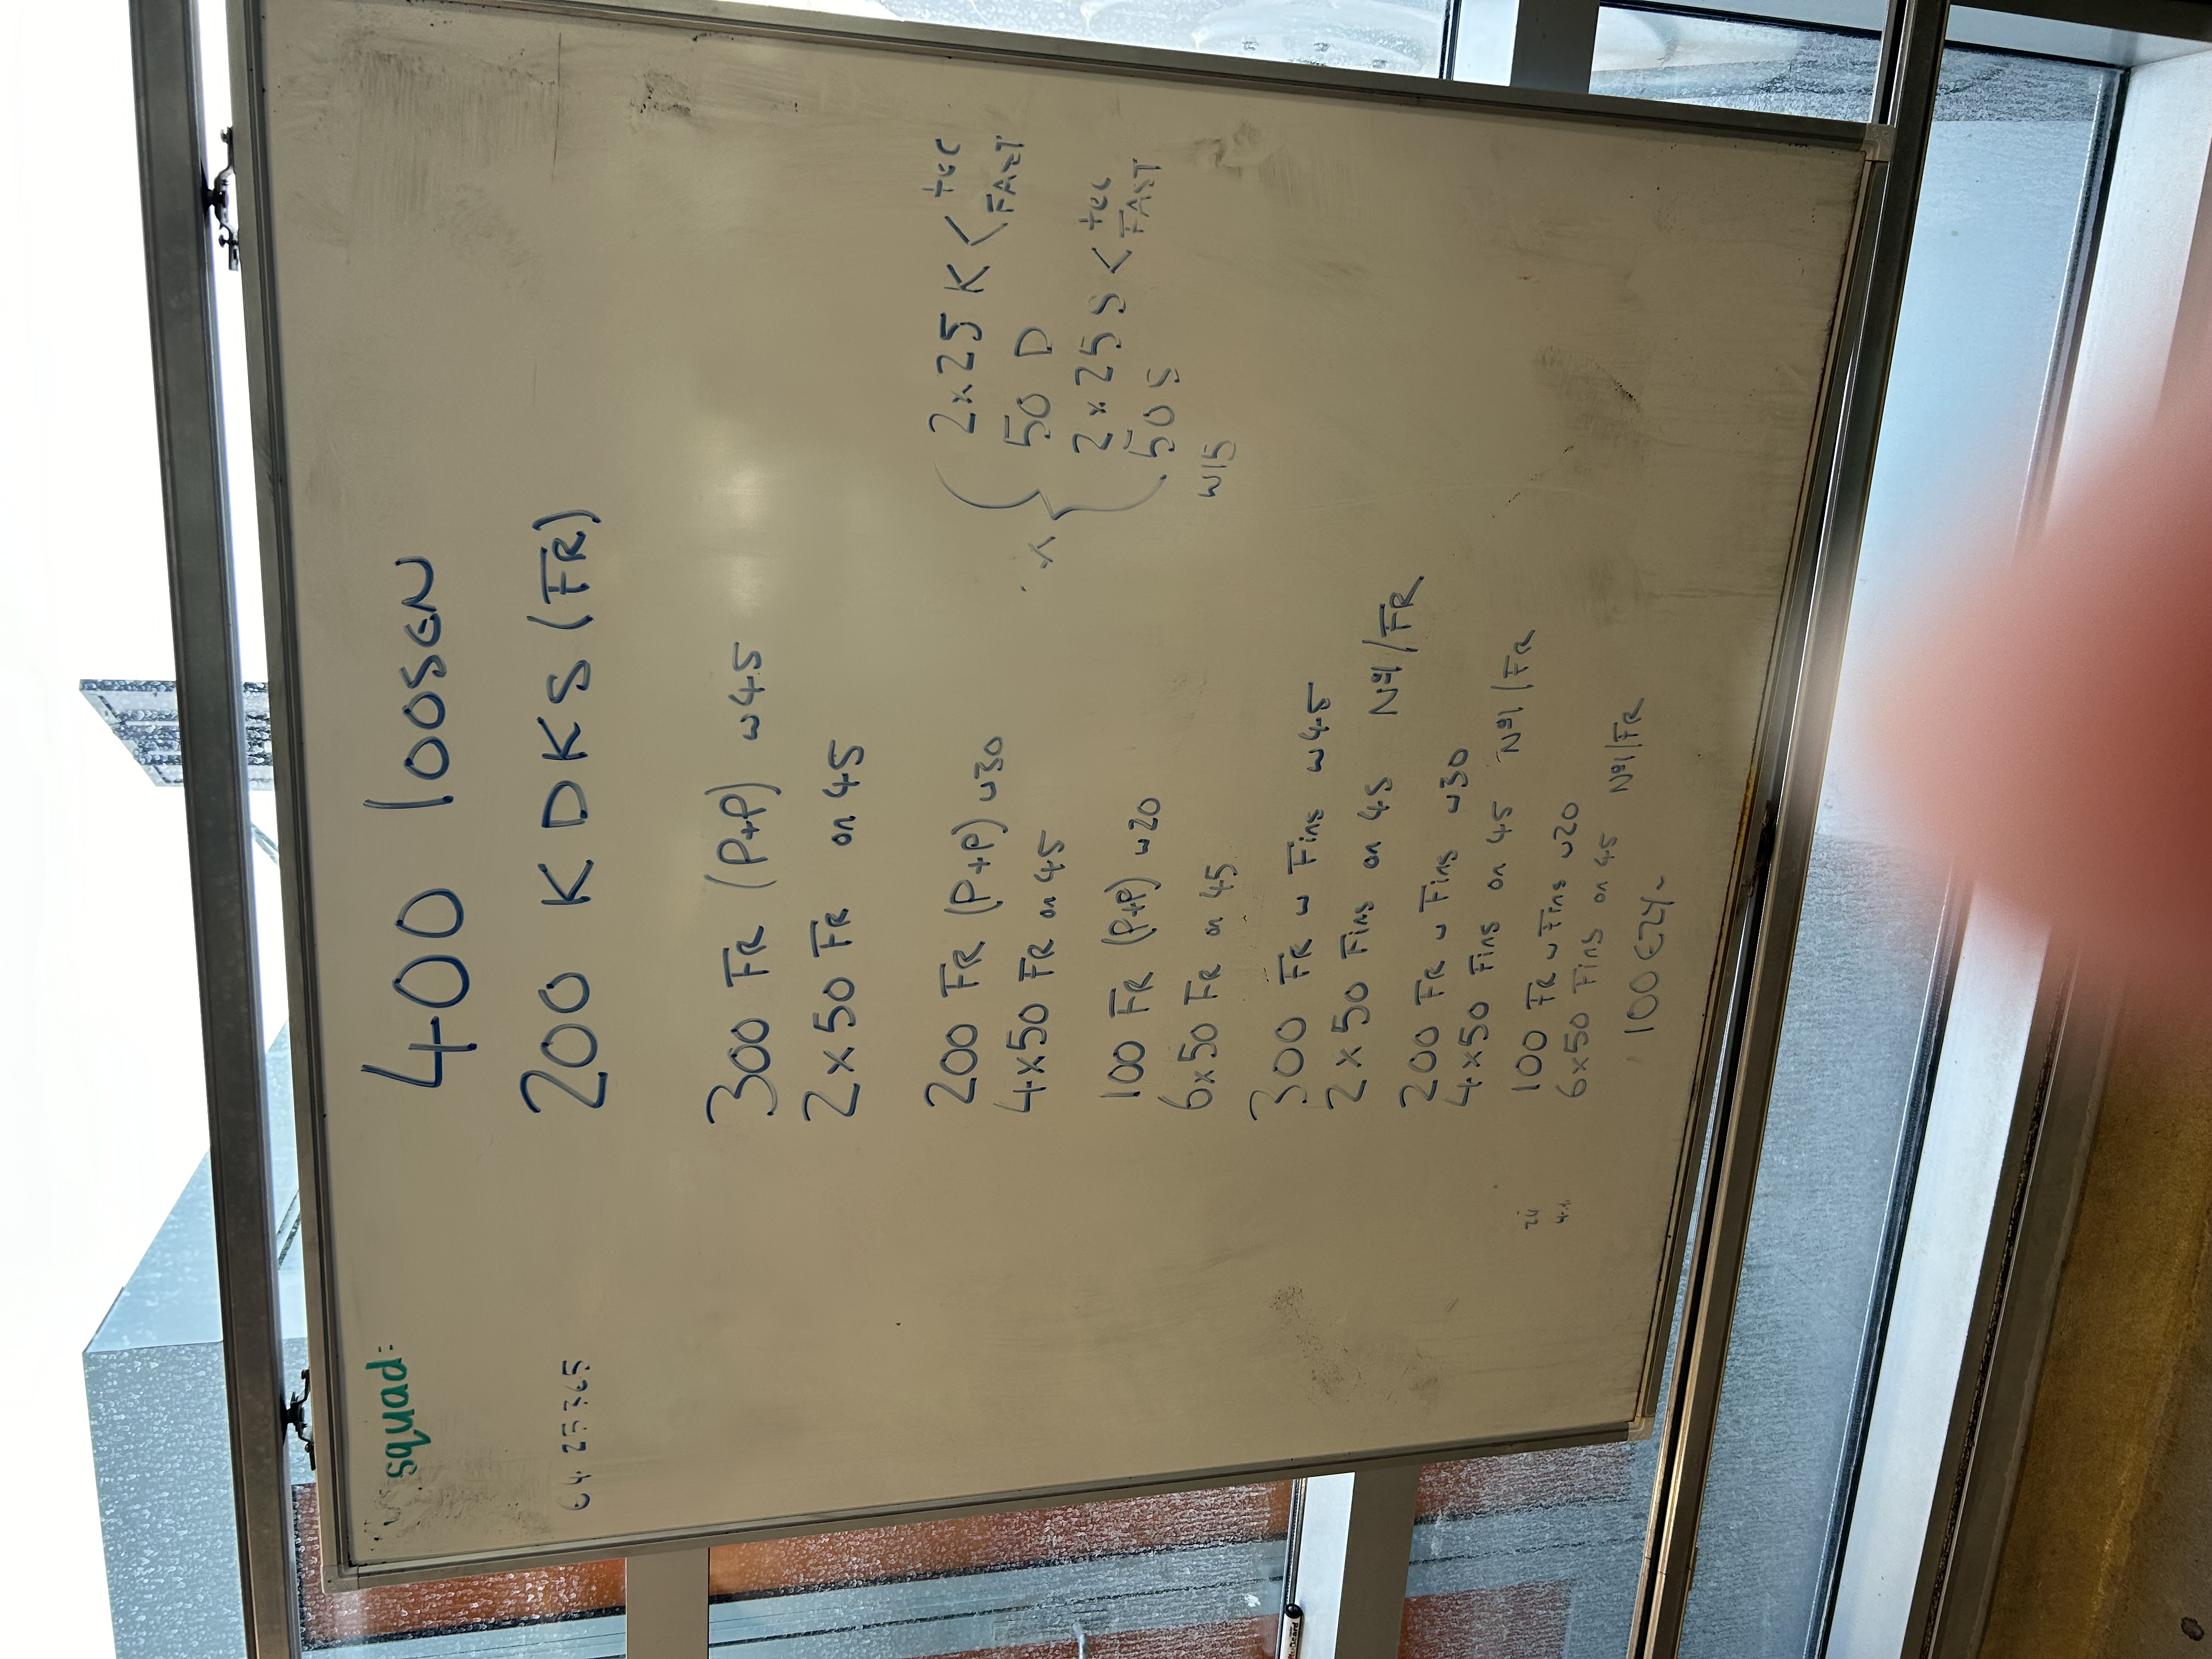 squad:
400 loosen
200 K DKS (FR)
300 FR (P+P) w45
2x50 FR on 45
200 FR (P+P) w30
4x50 FR on 45
100 FR (P+P) w20
6x50 FR on 45
300 FR w Fins w45
2x50 Fins on 45 Nº1/FR
200 FR w Fins w30
4x50 Fins on 45 Nº1/FR
100 FR w Fins w20
6x50 Fins on 45 Nº1/FR
100 EZY
2x25 K < tec
FAST
50 D
2x25 S < tec
FAST
50 S
w15